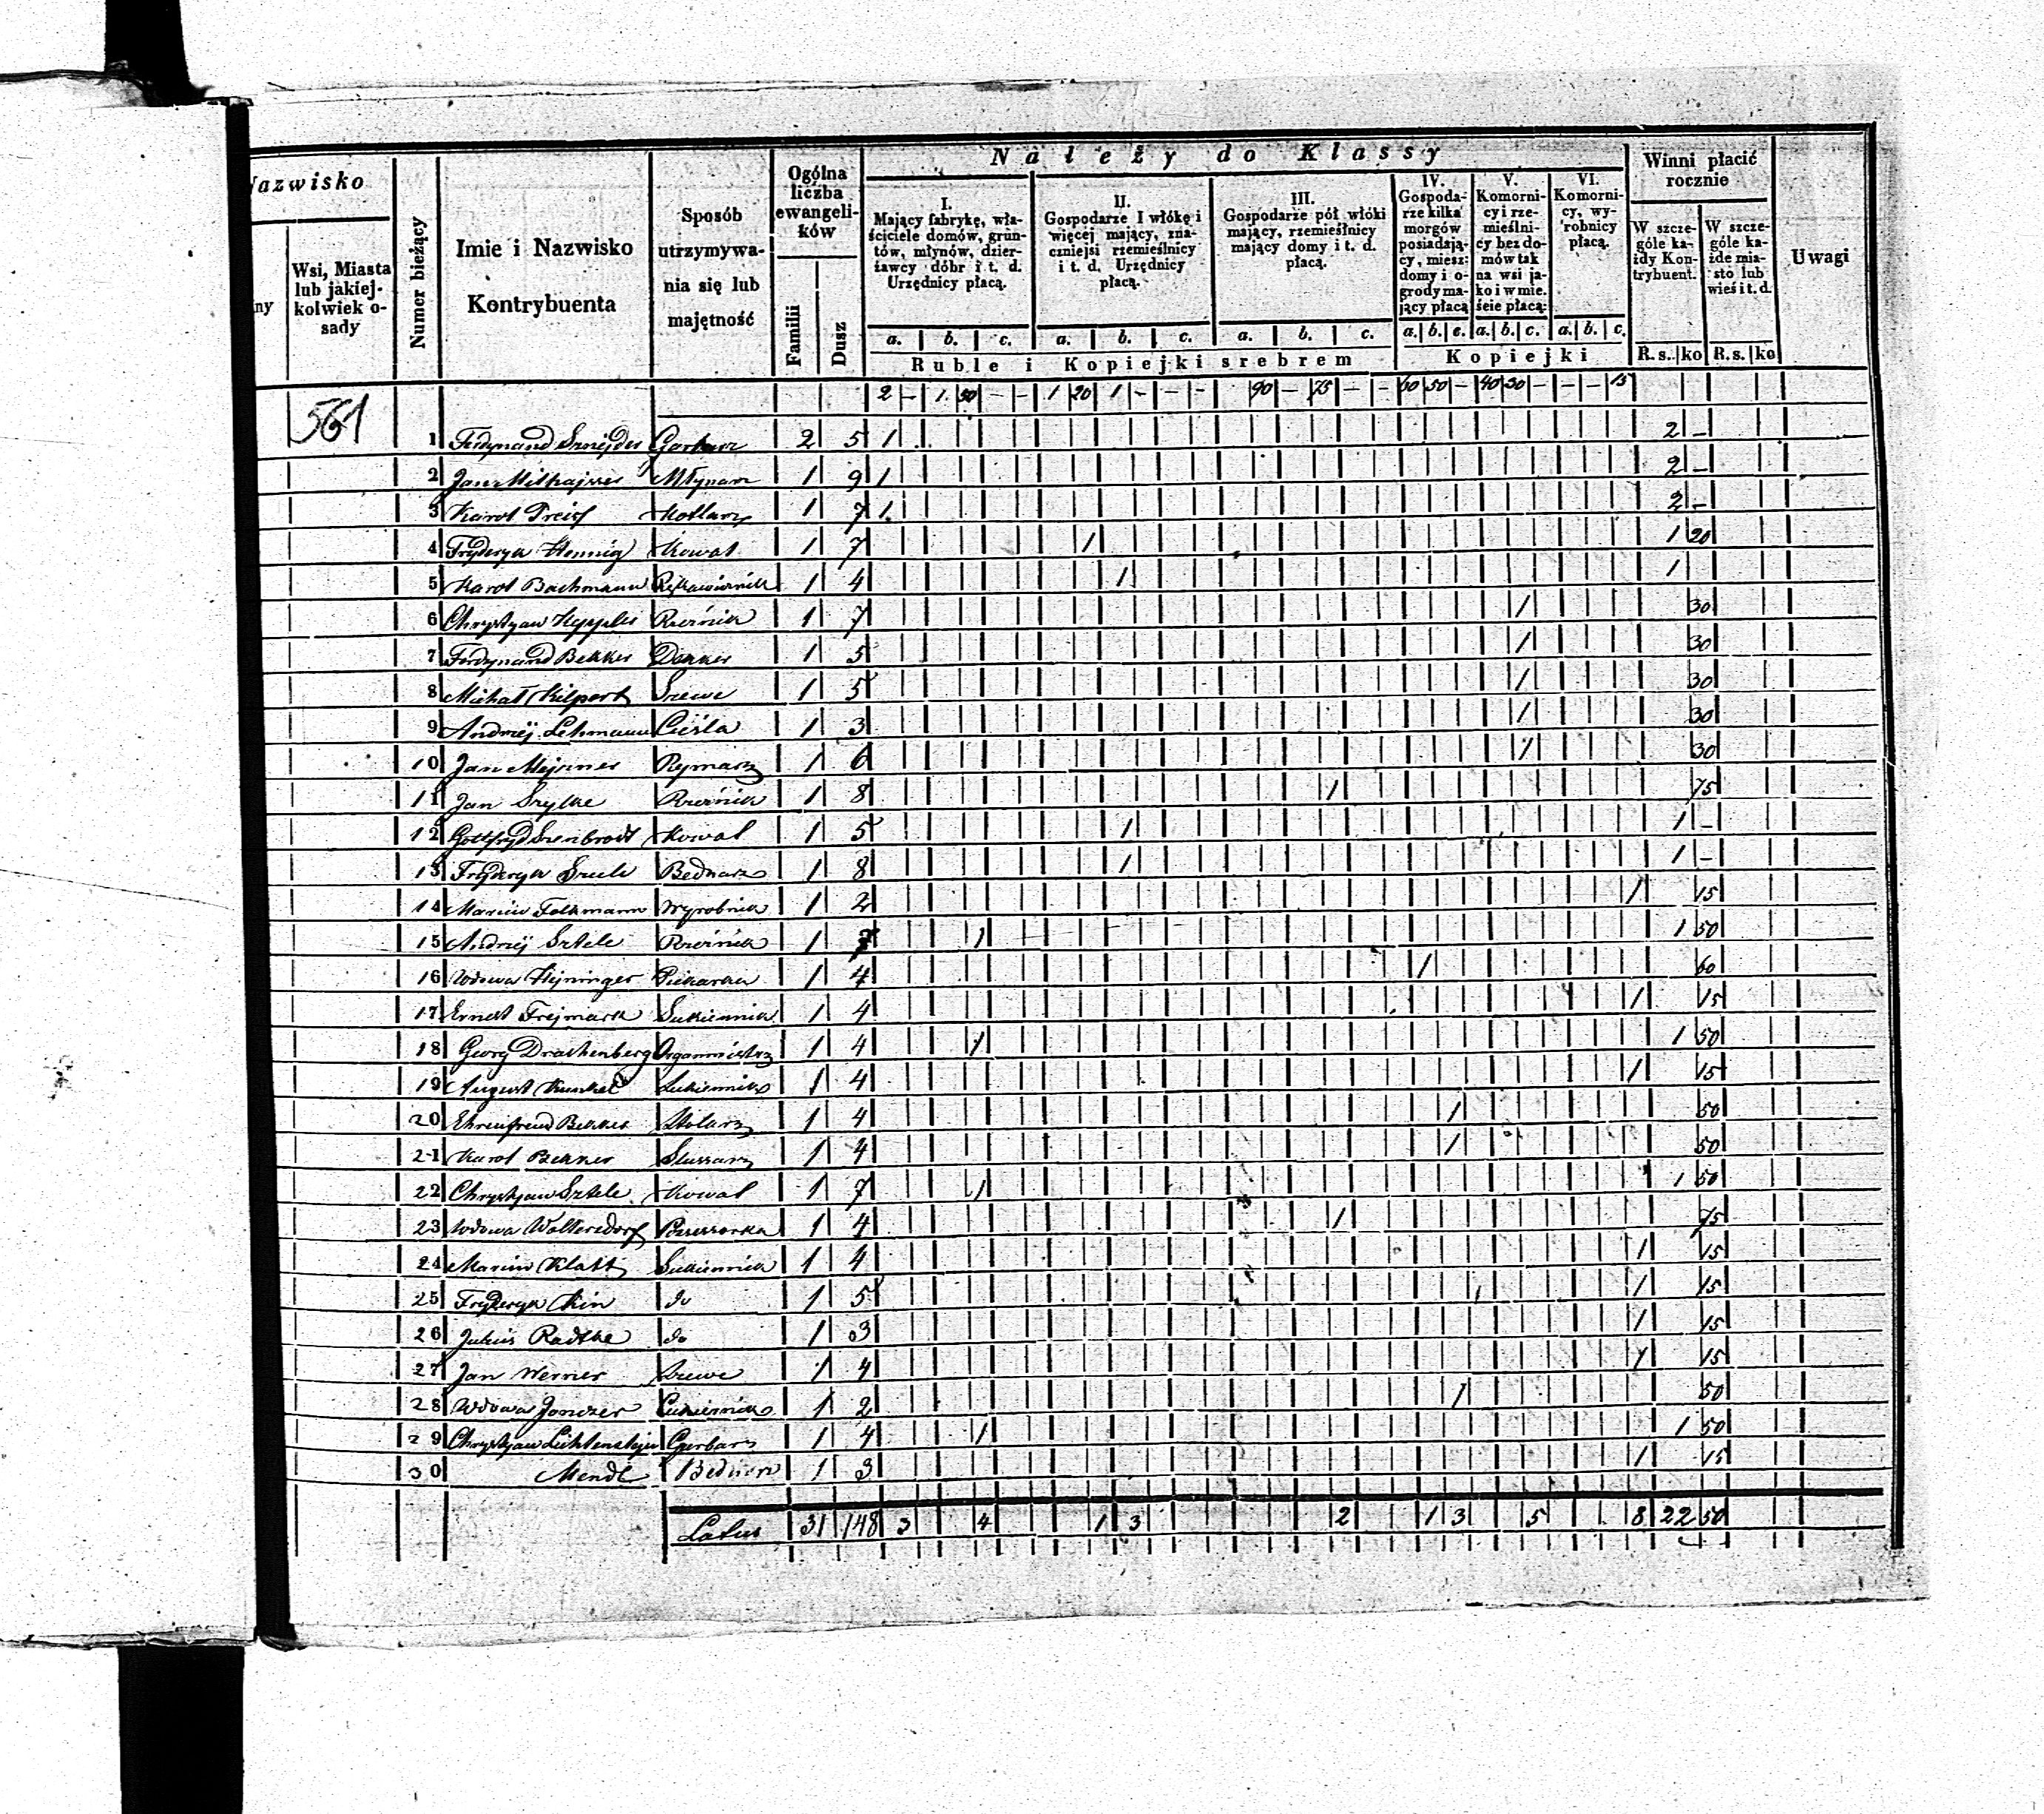 Należy do Klassy
Nazwisko
ny
Wsi, Miasta lub jakiej-kolwiek o-sady
Numer bieżący
Imie i Nazwisko Kontrybuenta
Sposób utrzymywa-nia się lub majętność
Ogólna liczba ewangeli-ków
Familii
Dusz
I. Mający fabrykę, wła-ściciele domów, grun-tów, młynów, dzier-żawcy dóbr i t. d. Urzędnicy płacą.
II. Gospodarze I włókę i więcej mający, zna-czniejsi rzemieślnicy i t. d. Urzędnicy płacą.
III. Gospodarze pół włóki mający, rzemieślnicy mający domy i t. d. płacą.
IV. Gospoda-rze kilka morgów posiadają-cy, miesz: domy i o-grody ma-jący płacą
V. Komorni-cy i rze-mieślni-cy bez do-mów tak na wsi ja-ko i w mie. ście płacą:
VI. Komorni-cy, wy-robnicy płacą.
Winni płacić rocznie
W szcze-góle ka-żdy Kon-trybuent.
W szcze-góle ka-żde mia-sto lub wieś i t. d.
Uwagi
a. b. c. a. b. c. a. b. c. a. b. c. a. b. c. a. b. c.
Ruble i Kopiejki srebrem
Kopiejki
R. s. ko R. s. ko
2 - 1 50 - - 1 20 1 - - - 90 - 75 - - 60 50 - 40 30 - - - 15
561
1 Ferdynand Sznejder Garbarz 2 5 1 2 -
2 Jan Młynarz 1 9 1 2 -
3 Karol Preiss Kotlarz 1 7 1 2 -
4 Fryderyk Hennig Kowal 1 7 1 1 20
5 Karol Bachmann Rękawicznik 1 4 1 1
6 Chrystyan Heppler Rzeźnik 1 7 1 30
7 Ferdynand Bekker Dekker 1 5 1 30
8 Michał Kilpert Szewc 1 5 1 30
9 Andrzéj Lehmann Cieśla 1 3 1 30
10 Jan Mejsner Rymarz 1 6 1 30
11 Jan Szylke Rzeźnik 1 8 1 75
12 Gottfryd Szenbrodt Kowal 1 5 1 1 -
13 Fryderyk Bednarz 1 8 1 1 -
14 Marcin Folkmann Wyrobnik 1 2 1 15
15 Andrzéj Sztele Rzeźnik 1 7 1 1 50
16 Wdowa Hejninger Piekarka 1 4 1 60
17 Ernest Frejmark Sukiennik 1 4 1 15
18 Georg Drachenberg Organmistrz 1 4 1 1 50
19 August Kunkel Sukiennik 1 4 1 15
20 Ehrenfried Bekker Stolarz 1 4 1 50
21 Karol Bekker Slussarz 1 4 1 50
22 Chrystyan Sztele Kowal 1 7 1 1 50
23 Wdowa Woltersdorf 1 4 1 75
24 Marcin Klatt Sukiennik 1 4 1 15
25 Fryderyk Kin do 1 5 1 15
26 Julius Radtke do 1 3 1 15
27 Jan Werner Szewc 1 4 1 15
28 Wdowa Jonczer 1 2 1 50
29 Chrystyan Lichtenstejn Garbarz 1 4 1 1 50
30 Mendl Bednarz 1 3 1 15
Latus 31 148 3 4 1 3 2 1 3 5 8 22 50